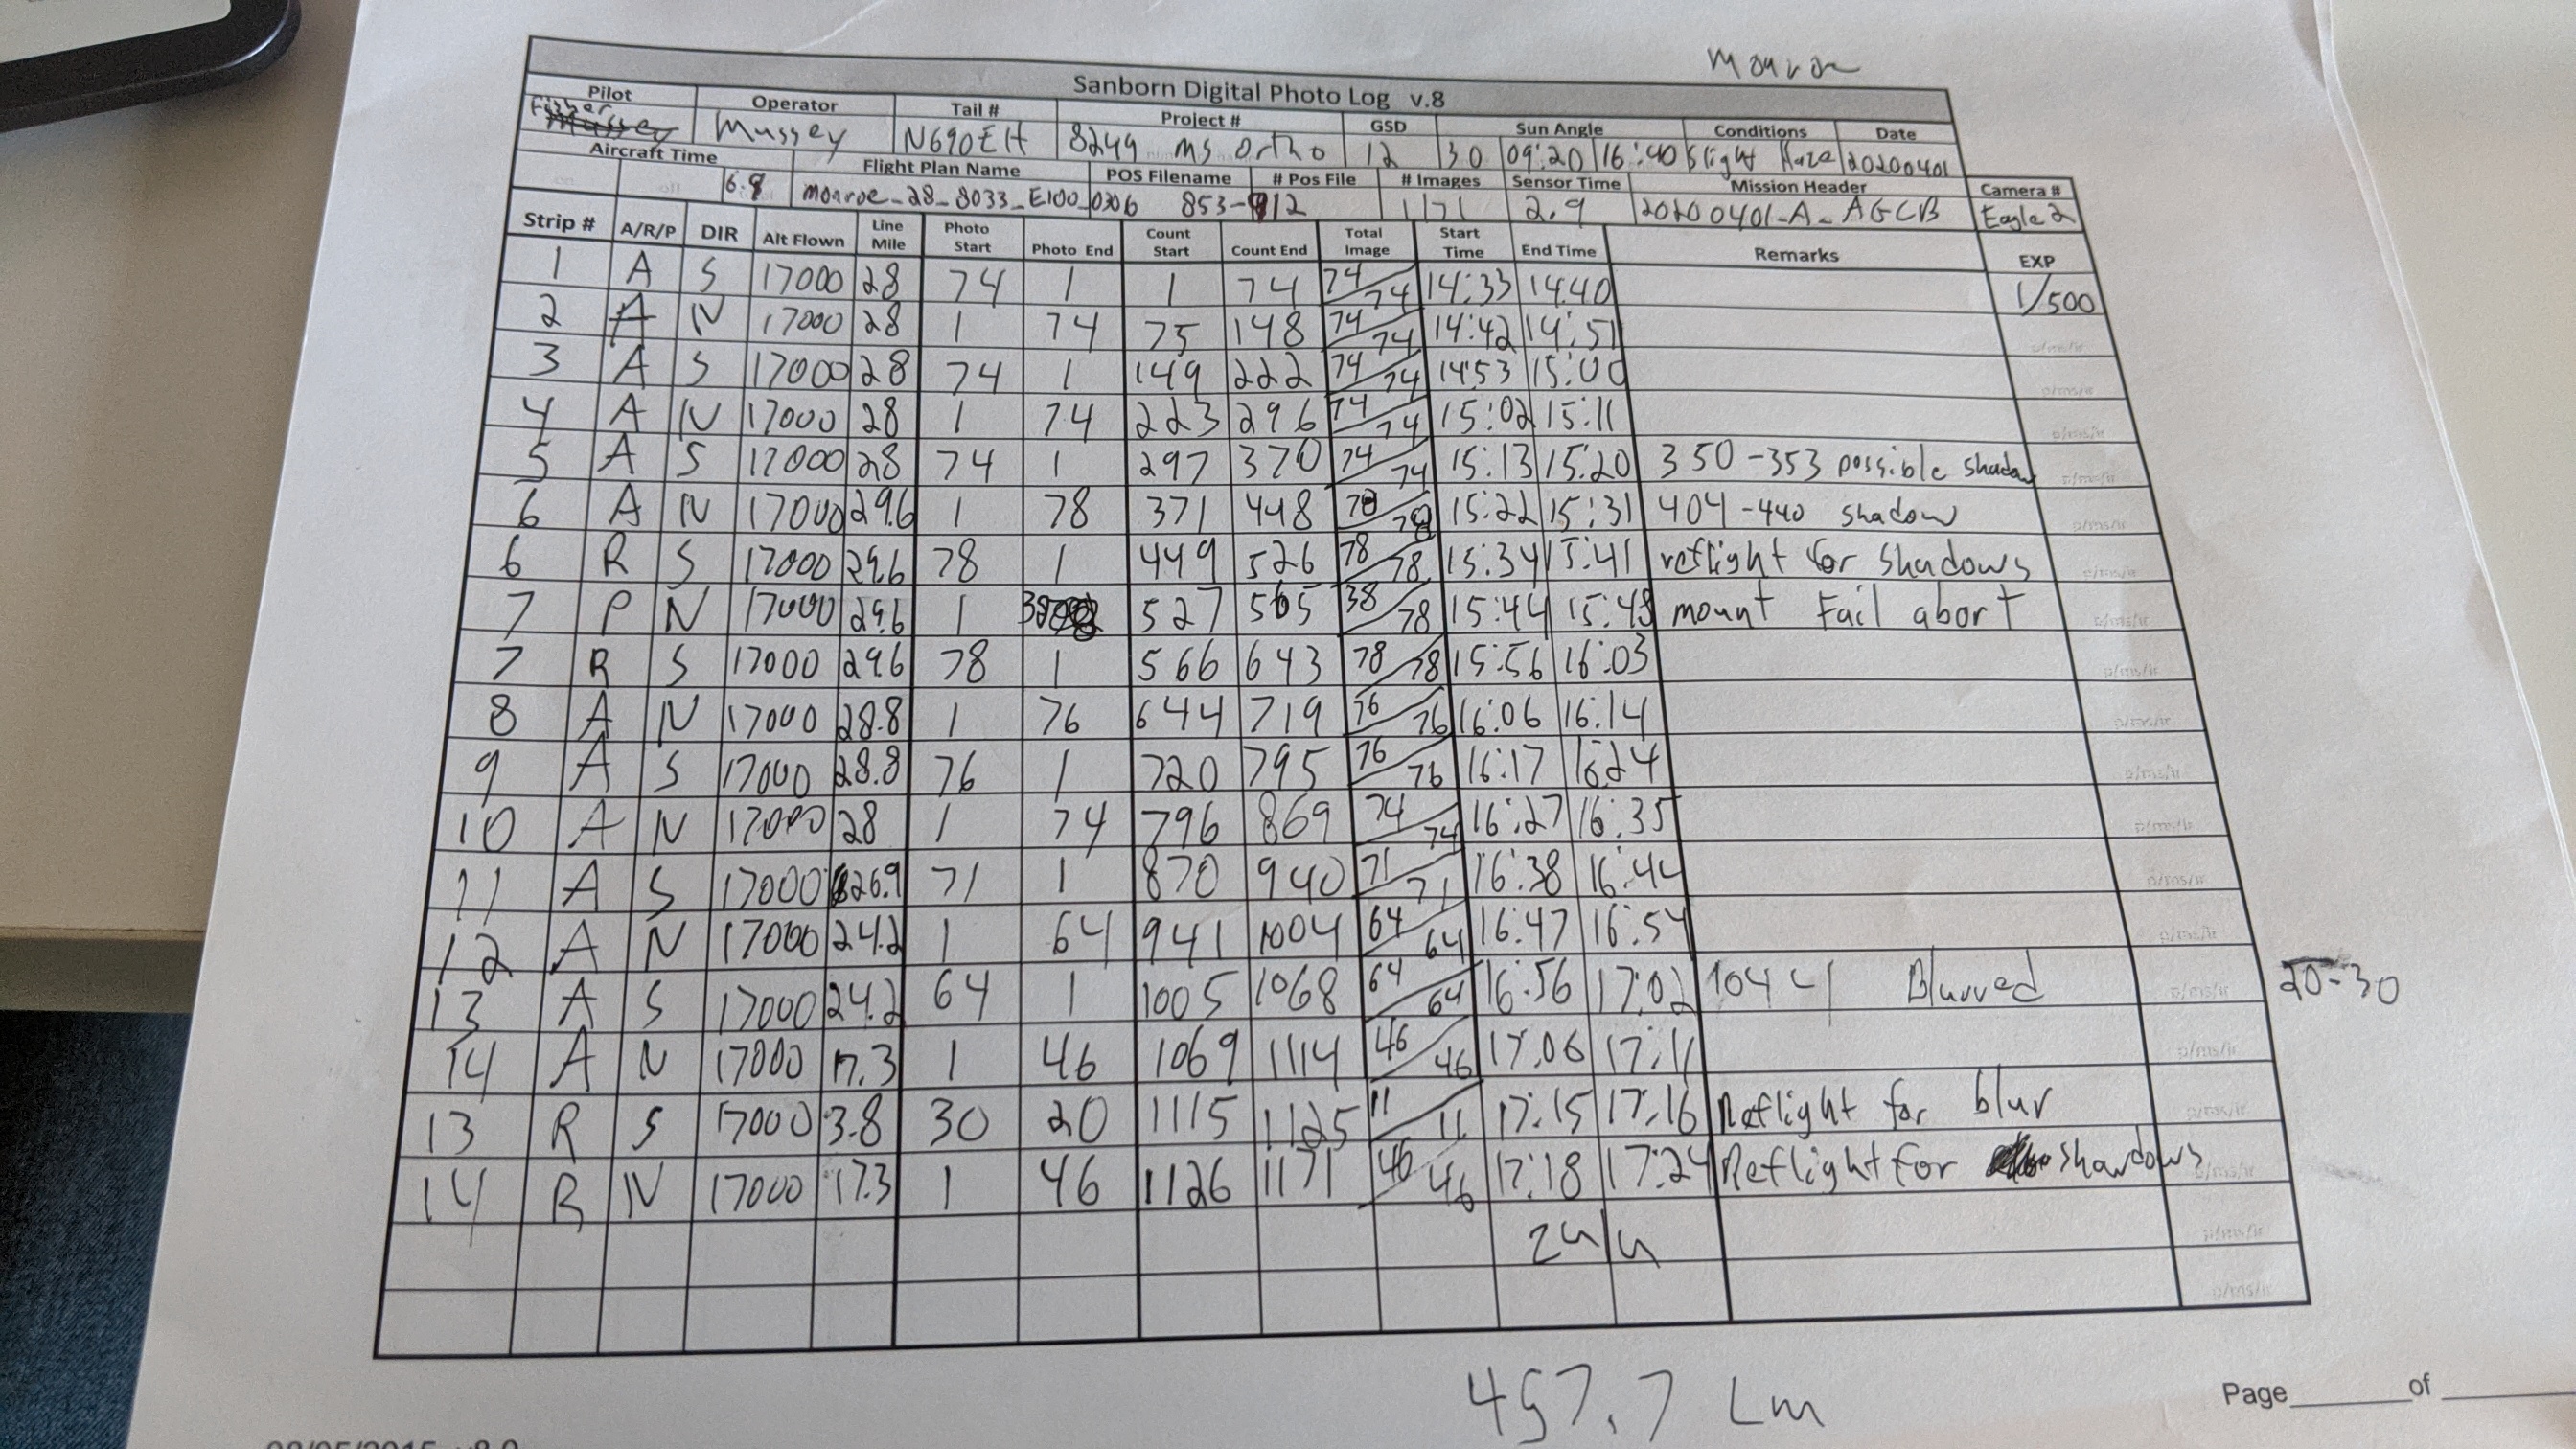 Monroe
Sanborn Digital Photo Log v.8
Pilot Operator Tail # Project # GSD Sun Angle Conditions Date
Fisher Mussey Mussey N690EH 8249 MS Ortho 12 30 09:20 16:40 Slight Haze 20200401
Aircraft Time Flight Plan Name POS Filename # Pos File # Images Sensor Time Mission Header Camera #
6.9 Monroe_28_8033_E100_0306 853-912 1171 2.9 20200401-A-AGCB Eagle 2
Strip # A/R/P DIR Alt Flown Line Mile Photo Start Photo End Count Start Count End Total Image Start Time End Time Remarks EXP
1 A S 17000 28 74 1 1 74 74/74 14:33 14:40 1/500
2 A N 17000 28 1 74 75 148 74/74 14:42 14:51
3 A S 17000 28 74 1 149 222 74/74 14:53 15:00
4 A N 17000 28 1 74 223 296 74/74 15:02 15:11
5 A S 17000 28 74 1 297 370 74/74 15:13 15:20 350-353 possible shadow
6 A N 17000 29.6 1 78 371 448 78/78 15:22 15:31 404-440 shadow
6 R S 17000 29.6 78 1 449 526 78/78 15:34 15:41 reflight for shadows
7 P N 17000 29.6 1 38 527 565 38/78 15:44 15:48 mount Fail abort
7 R S 17000 29.6 78 1 566 643 78/78 15:56 16:03
8 A N 17000 28.8 1 76 644 719 76/76 16:06 16:14
9 A S 17000 28.8 76 1 720 795 76/76 16:17 16:24
10 A N 17000 28 1 74 796 869 74/74 16:27 16:35
11 A S 17000 26.9 71 1 870 940 71/71 16:38 16:44
12 A N 17000 24.2 1 64 941 1004 64/64 16:47 16:54
13 A S 17000 24.2 64 1 1005 1068 64/64 16:56 17:02 Blurred 20-30
14 A N 17000 17.3 1 46 1069 1114 46/46 17:06 17:11
13 R S 17000 3.8 30 20 1115 1125 11/11 17:15 17:16 Reflight for blur
14 R N 17000 17.3 1 46 1126 1171 46/46 17:18 17:24 Reflight for shawdows
457.7 Lm
Page of